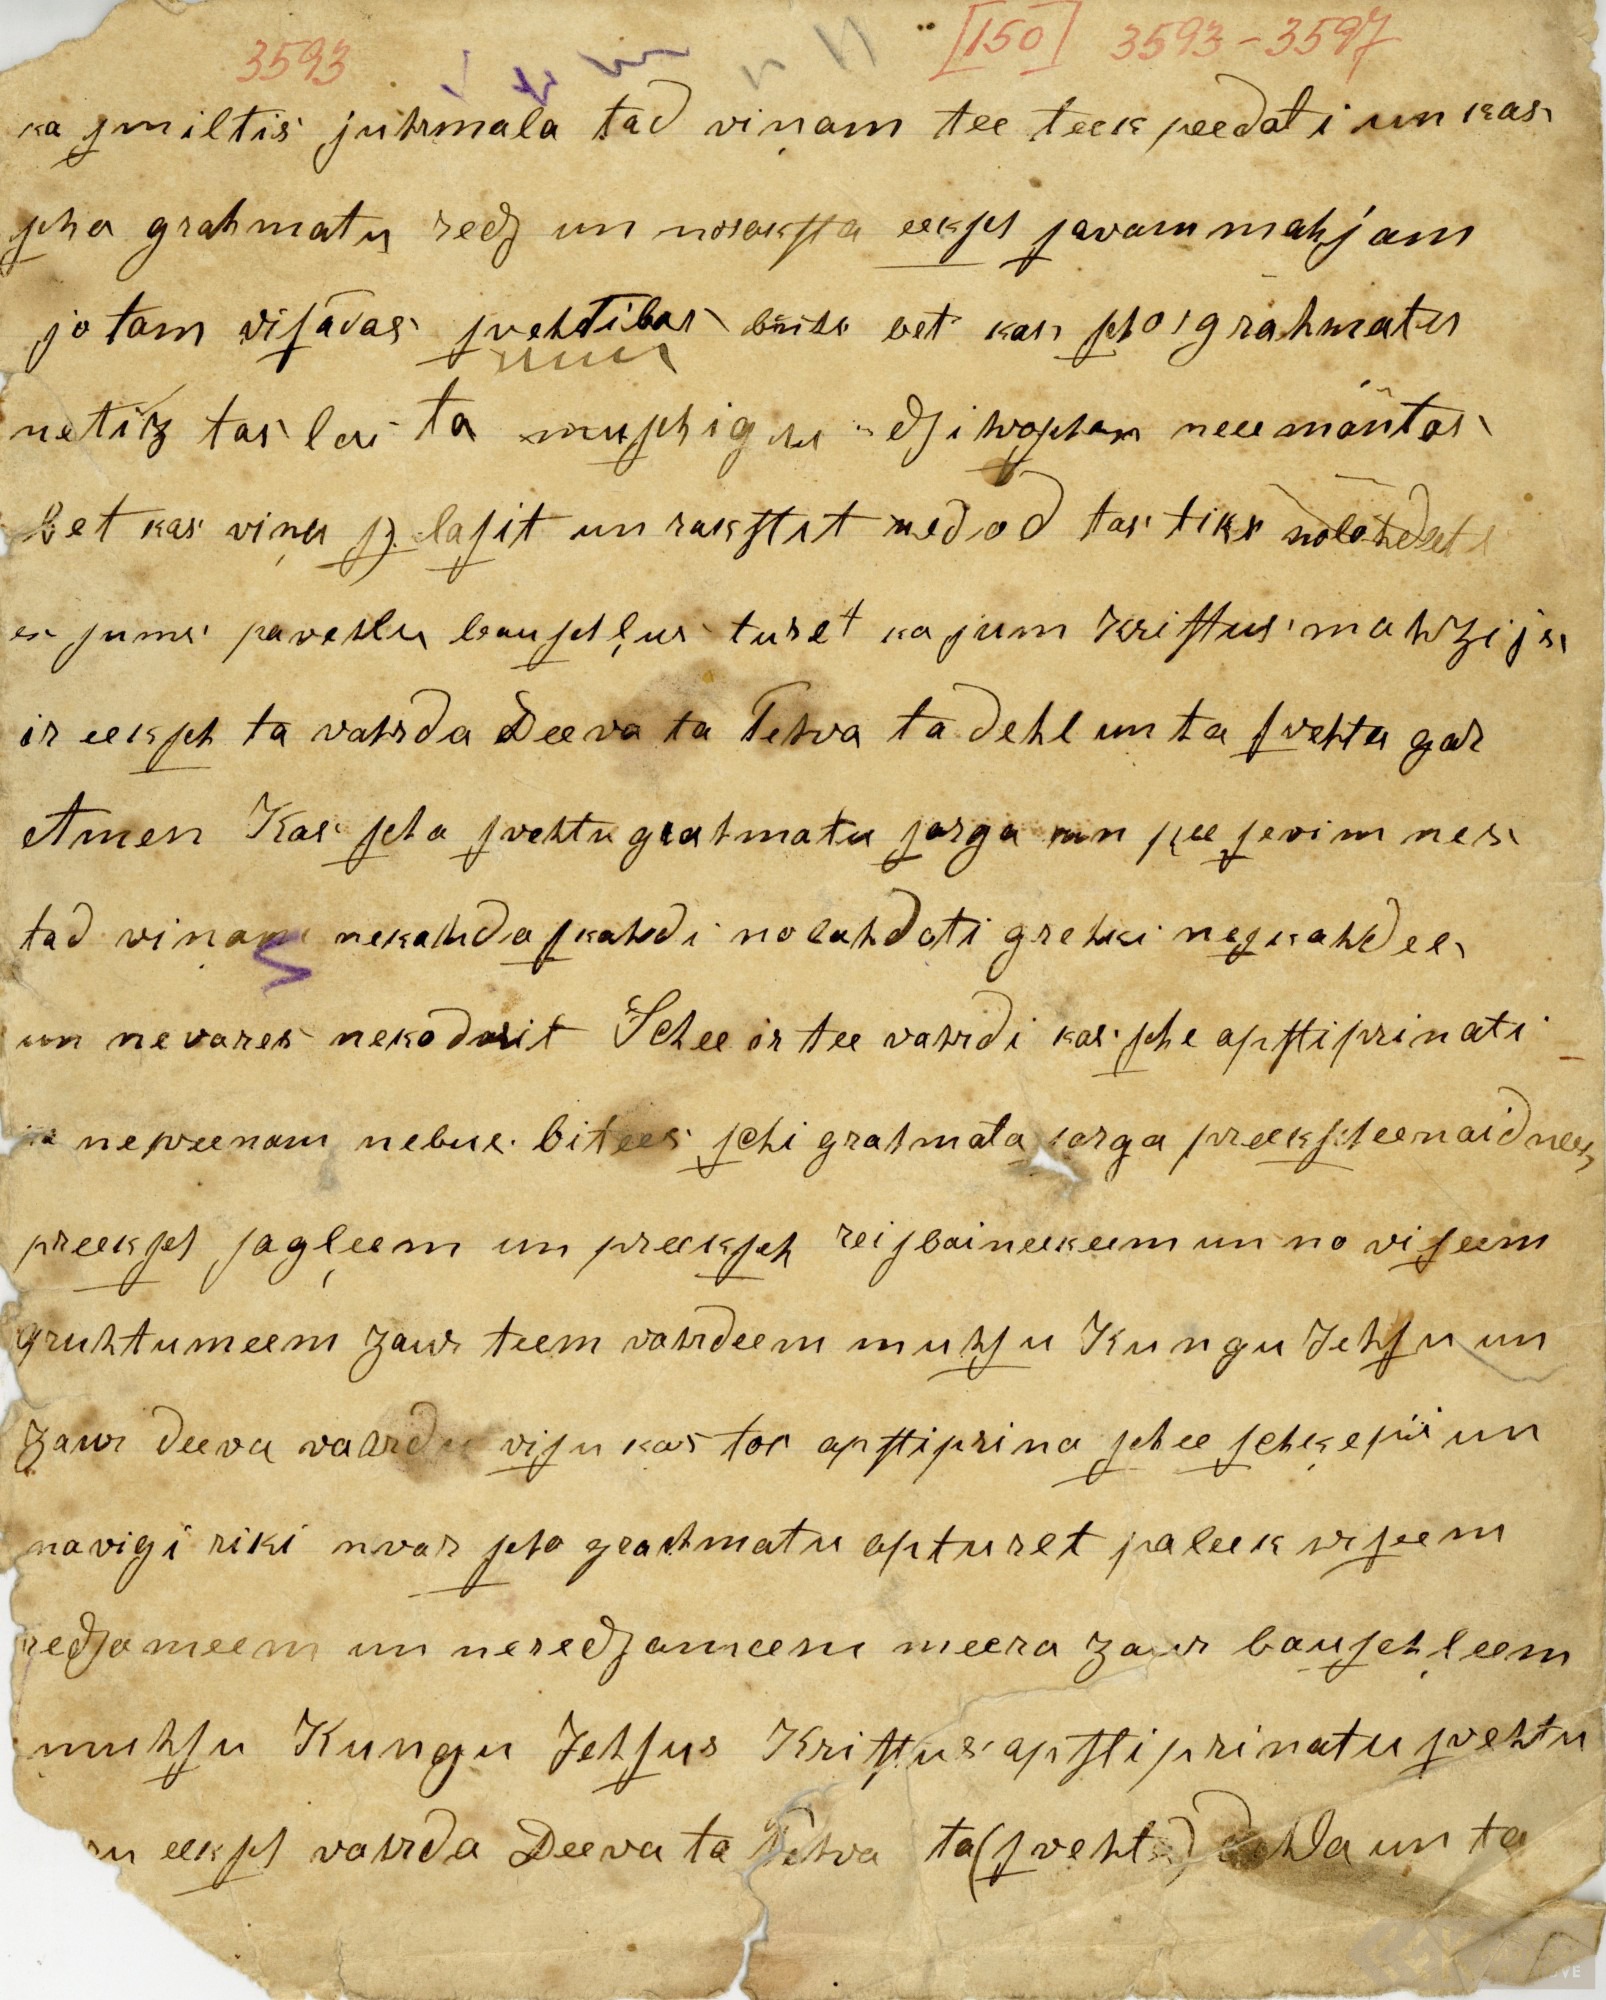 3593 [150] 3593-3597
ka smiltis juhrmala tad viņam tee teek peedoti un kas
scho grahmatu redz un noraksta eeksch savam mahjam
jo tam visadas svehtibas buhs bet kas scho grahmatu
netiz tas lai ta muschigu dzihwoschan neeemantos
bet kas viņu s. lasit un rakstit nedod tas tiks nolahdets
es jums pavehlu bauschļus turet ka jum Kristus mahzijs
ir eeksch ta vahrda Deeva ta Tehva ta dehl un ta svehta gar
Amen Kas scho svehtu grahmatu sarga un pee sevim nes
tad vinam nekahda skahdi nolahdoti grehki neskahdee
un nevares nekodarit Schee ir tee vahrdi kas sche apstiprinati
ka neweenam nebus bitees schi grahmata sarga preeksch eenaidnee
preeksch sagļeem un preeksch reisbaineekeem un no viseem
gruhtumeem zaur teem vahrdeem muhsu Kungu Jehsu un
zaur deeva vahrdu visu kas tor apstiprina schee schķepi un
navigi riki nvar scho grahmatu apturet paleek wiseem
redzameem un neredzameem meera zaur bauschļeem
muhsu Kungu Jehsus Kristus apstiprinatu svehtu
eeksch vahrda Deeva ta Tehva ta (svehta) dehla un ta